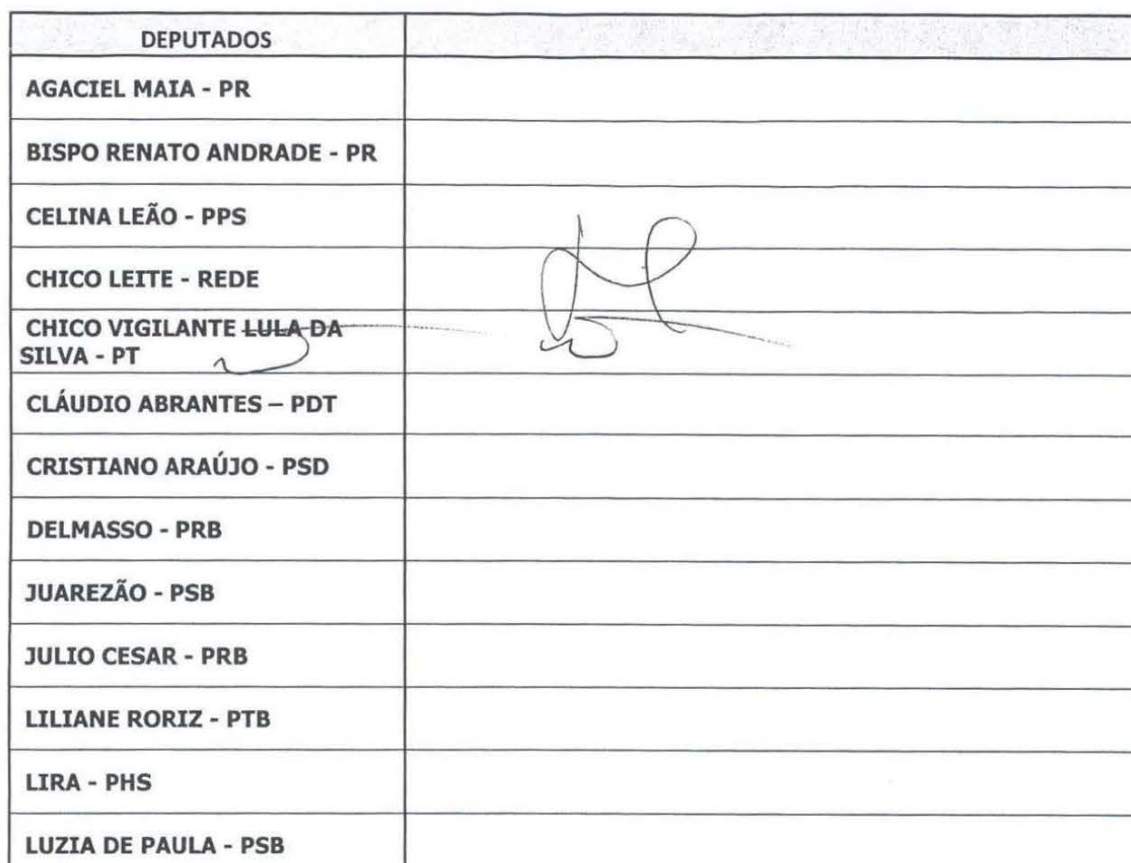 DEPUTADOS
AGACIEL MAIA - PR
BISPO RENATO ANDRADE - PR
CELINA LEÃO - PPS
CHICO LEITE - REDE
CHICO VIGILANTE LULA DA
SILVA - PT
CLÁUDIO ABRANTES – PDT
CRISTIANO ARAÚJO - PSD
DELMASSO - PRB
JUAREZÃO - PSB
JULIO CESAR - PRB
LILIANE RORIZ - PTB
LIRA - PHS
LUZIA DE PAULA - PSB